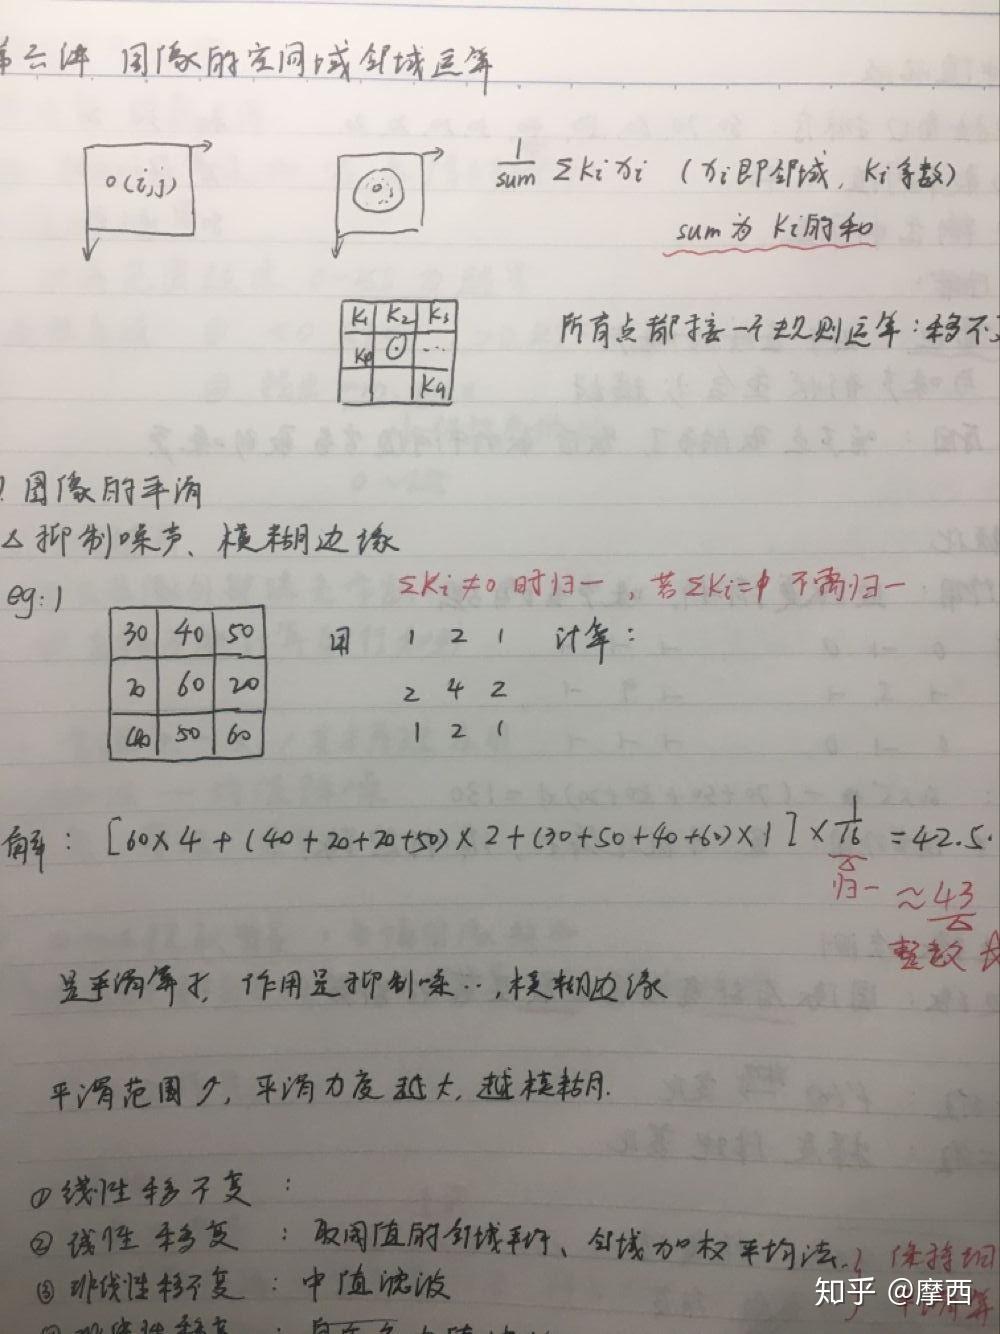 第六讲 图像的空间域邻域运算
o(i,j)
1/sum ΣKixi (xi即邻域,Ki系数)
sum为Ki的和
K1 K2 K3
...
K9
所有点都按一个规则运算:移不
图像的平滑
△抑制噪声、模糊边缘
eg:1
ΣKi≠0时归一,若ΣKi=0不需归一
30 40 50
20 60 20
40 50 60
用 1 2 1 计算:
2 4 2
1 2 1
解: [60×4+(40+20+20+50)×2+(30+50+40+60)×1]×1/16=42.5
归一
≈43
整数
是平滑算子,作用是抑制噪..,模糊边缘
平滑范围↗,平滑力度越大,越模糊.
①线性移不变:
②线性移变:取阈值的邻域平均、邻域加权平均法.
保持
③非线性移不变:中值滤波
知乎 @摩西